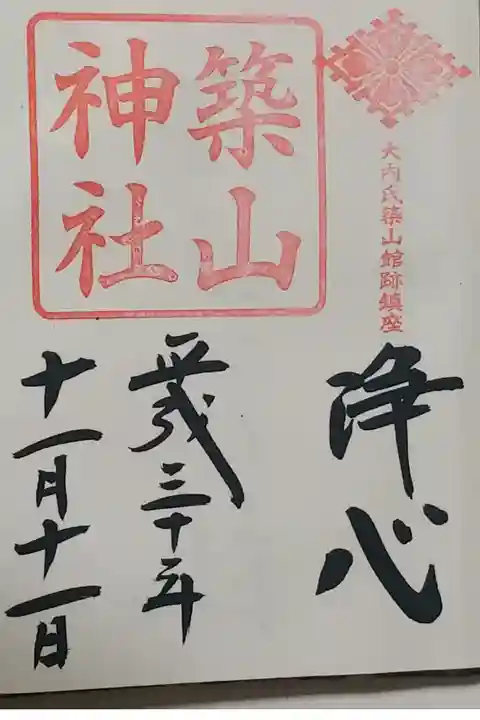 大内氏築山館跡鎮座
築山
神社
浄心
平成三十年
十一月十一日